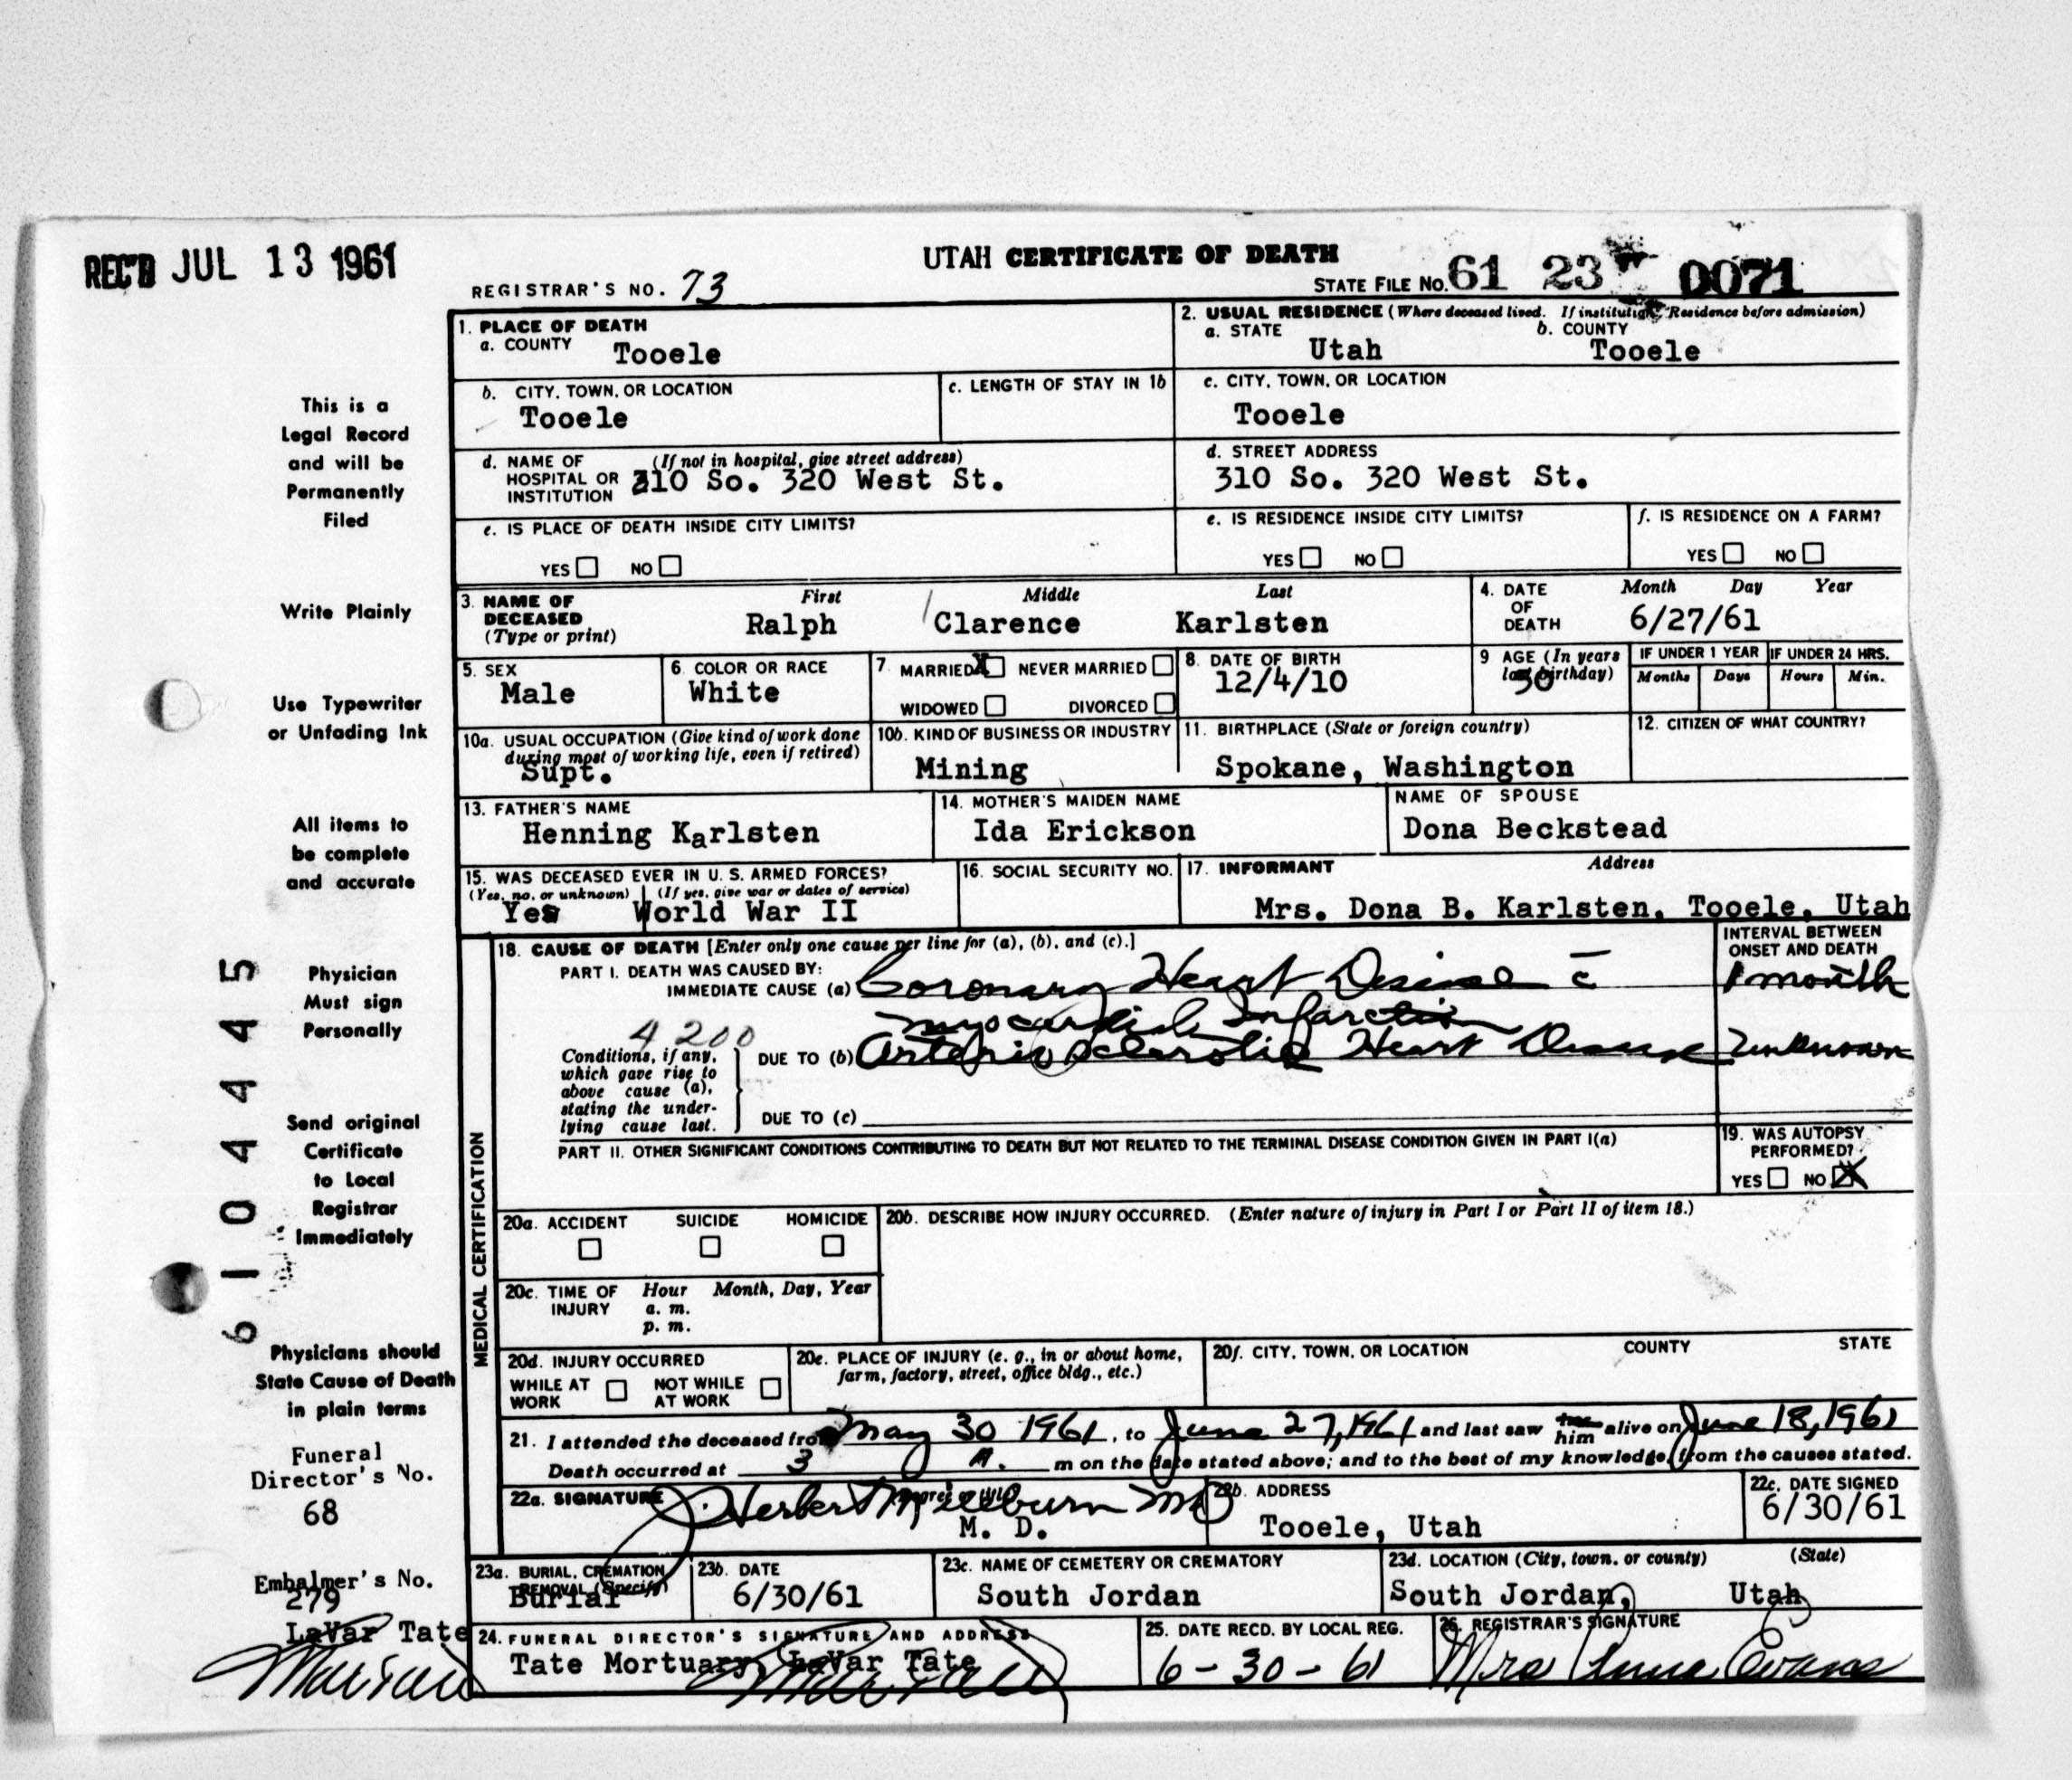 REC'D JUL 13 1961
UTAH CERTIFICATE OF DEATH
REGISTRAR'S NO. 73
STATE FILE No. 61 23 0071
1. PLACE OF DEATH
a. COUNTY Tooele
2. USUAL RESIDENCE (Where deceased lived. If institution: Residence before admission)
a. STATE Utah b. COUNTY Tooele
b. CITY, TOWN, OR LOCATION Tooele
c. LENGTH OF STAY IN 1b
c. CITY, TOWN, OR LOCATION Tooele
d. NAME OF HOSPITAL OR INSTITUTION (If not in hospital, give street address) 310 So. 320 West St.
d. STREET ADDRESS 310 So. 320 West St.
e. IS PLACE OF DEATH INSIDE CITY LIMITS?
YES NO
e. IS RESIDENCE INSIDE CITY LIMITS?
YES NO
f. IS RESIDENCE ON A FARM?
YES NO
3. NAME OF DECEASED (Type or print)
First Middle Last
Ralph Clarence Karlsten
4. DATE OF DEATH Month Day Year
6/27/61
5. SEX Male
6. COLOR OR RACE White
7. MARRIED X NEVER MARRIED
WIDOWED DIVORCED
8. DATE OF BIRTH 12/4/10
9 AGE (In years last birthday) 50
IF UNDER 1 YEAR Months Days
IF UNDER 24 HRS. Hours Min.
10a. USUAL OCCUPATION (Give kind of work done during most of working life, even if retired)
Supt.
10b. KIND OF BUSINESS OR INDUSTRY
Mining
11. BIRTHPLACE (State or foreign country)
Spokane, Washington
12. CITIZEN OF WHAT COUNTRY?
13. FATHER'S NAME
Henning Karlsten
14. MOTHER'S MAIDEN NAME
Ida Erickson
NAME OF SPOUSE
Dona Beckstead
15. WAS DECEASED EVER IN U. S. ARMED FORCES?
(Yes, no, or unknown) (If yes, give war or dates of service)
Yes World War II
16. SOCIAL SECURITY NO.
17. INFORMANT Address
Mrs. Dona B. Karlsten, Tooele, Utah
MEDICAL CERTIFICATION
18. CAUSE OF DEATH [Enter only one cause per line for (a), (b), and (c).]
INTERVAL BETWEEN ONSET AND DEATH
PART I. DEATH WAS CAUSED BY:
IMMEDIATE CAUSE (a) Coronary Heart Disease c̄ 1 month
myocardial Infarction
4200
Conditions, if any, which gave rise to above cause (a), stating the underlying cause last.
DUE TO (b) Arteriosclerotic Heart Disease unknown
DUE TO (c)
PART II. OTHER SIGNIFICANT CONDITIONS CONTRIBUTING TO DEATH BUT NOT RELATED TO THE TERMINAL DISEASE CONDITION GIVEN IN PART I(a)
19. WAS AUTOPSY PERFORMED?
YES NO X
20a. ACCIDENT SUICIDE HOMICIDE
20b. DESCRIBE HOW INJURY OCCURRED. (Enter nature of injury in Part I or Part II of item 18.)
20c. TIME OF INJURY Hour Month, Day, Year
a. m.
p. m.
20d. INJURY OCCURRED
WHILE AT WORK NOT WHILE AT WORK
20e. PLACE OF INJURY (e. g., in or about home, farm, factory, street, office bldg., etc.)
20f. CITY, TOWN, OR LOCATION COUNTY STATE
21. I attended the deceased from May 30 1961, to June 27, 1961 and last saw him alive on June 18, 1961
Death occurred at 3 A. m on the date stated above; and to the best of my knowledge, from the causes stated.
22a. SIGNATURE (Degree or title)
J. Herbert Millburn MD
M. D.
22b. ADDRESS
Tooele, Utah
22c. DATE SIGNED
6/30/61
23a. BURIAL, CREMATION REMOVAL (Specify)
Burial
23b. DATE
6/30/61
23c. NAME OF CEMETERY OR CREMATORY
South Jordan
23d. LOCATION (City, town, or county) (State)
South Jordan, Utah
24. FUNERAL DIRECTOR'S SIGNATURE AND ADDRESS
Tate Mortuary, LaVar Tate
25. DATE RECD. BY LOCAL REG.
6-30-61
26. REGISTRAR'S SIGNATURE
Mrs Evans
This is a
Legal Record
and will be
Permanently
Filed
Write Plainly
Use Typewriter
or Unfading Ink
All items to
be complete
and accurate
Physician
Must sign
Personally
Send original
Certificate
to Local
Registrar
Immediately
Physicians should
State Cause of Death
in plain terms
Funeral
Director's No.
68
Embalmer's No.
279
LaVar Tate
6104445